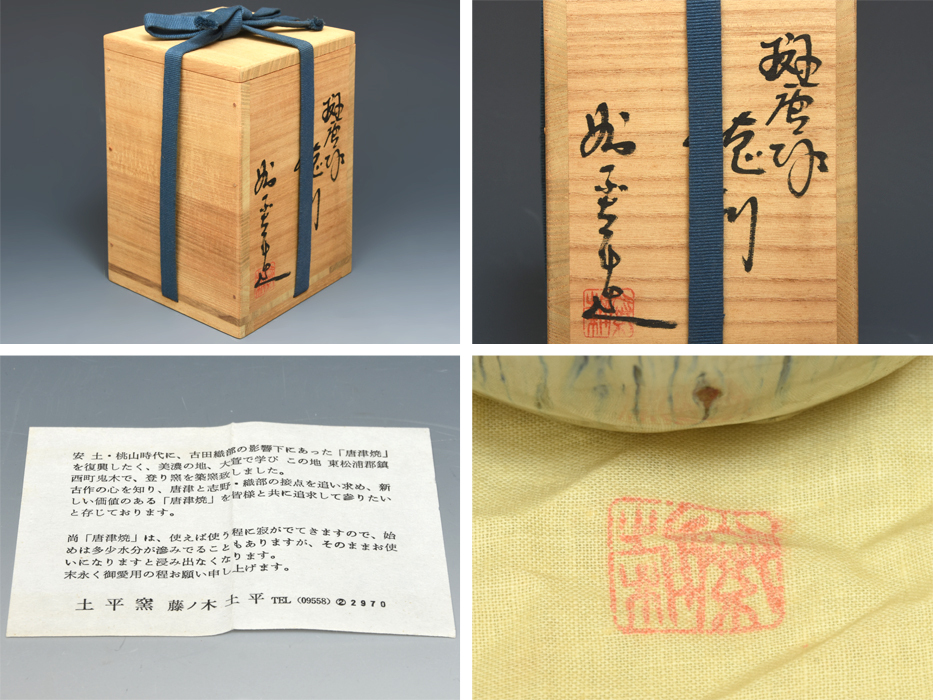 斑唐津
徳利
土平造
安土・桃山時代に、古田織部の影響下にあった「唐津焼」
を復興したく、美濃の地、大萱で学び この地 東松浦郡鎮
西町鬼木で、登り窯を築窯致しました。
古作の心を知り、唐津と志野・織部の接点を追い求め、新
しい価値のある「唐津焼」を皆様と共に追求して参りたい
と存じております。
尚「唐津焼」は、使えば使う程に寂がでてきますので、始
めは多少水分が滲みでることもありますが、そのままお使
いになりますと浸み出なくなります。
末永く御愛用の程お願い申し上げます。
土平窯 藤ノ木土平 TEL (09558) ② 2970